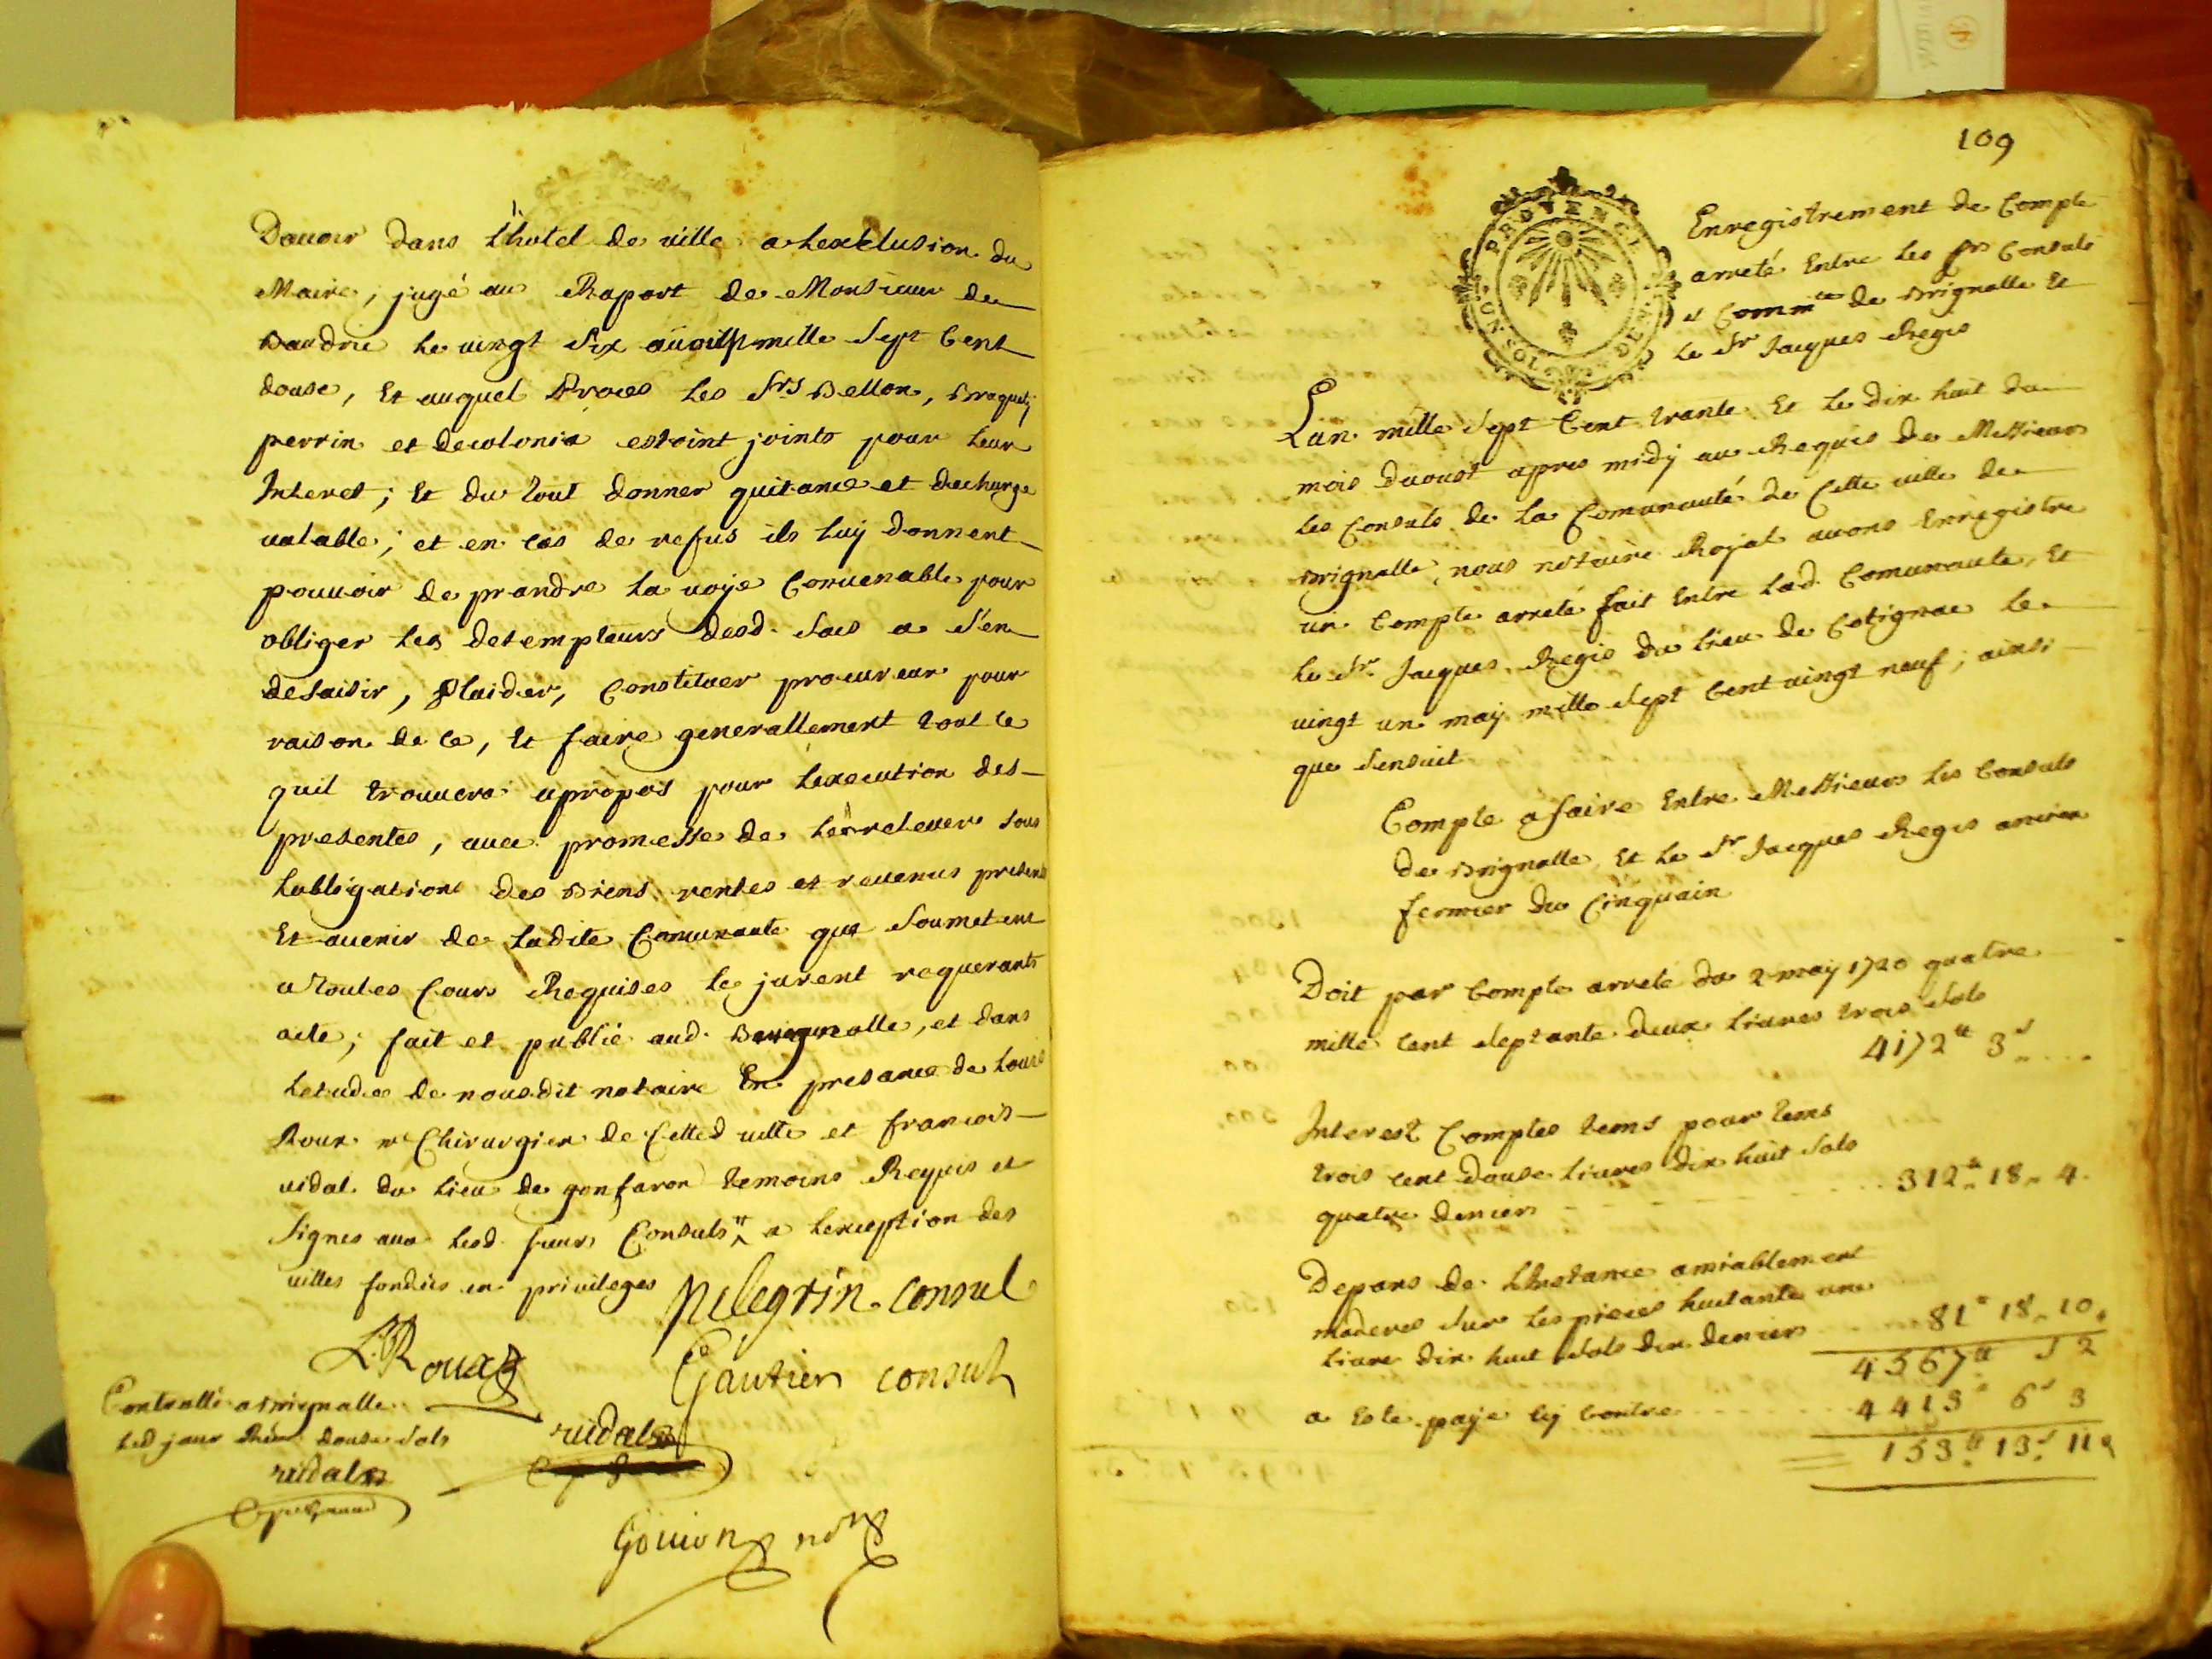 Dauoir dans Lhotel de ville a Lexclusion du
Maire, jugé au Raport de Monsieur de
Baudrie le vingt six mille sept Cent
douse, Et auquel Proces les Srs Bellon, Braquety
perrin et decolonia estoint joints pour leur
Interet; Et du tout donner quitance et decharge
valable; et en cas de refus ils luy donnent
pouuoir de prandre la uoye Conuenable pour
obliger les detempteurs desd. sacs a s'en
desaisir, plaider, Constituer procureur pour
raison de ce, Et faire generallement tout ce
quil trouuera apropos pour Lexecution des
presentes, auec promesse de le releuer sous
Lobligation des Biens rentes et reuenus presents
Et auenir de Ladite Comunauté que soumetent
a toutes Cours Requises le jurent requerants
acte; fait et publié aud. Brignolle, et dans
Letude de nousdit notaire En presance de Louis
Roux mᵉ Chirurgien de Cetted ville et francois
vidal du lieu de gonfaron temoins Requis et
signes aux lesd. sieurs Consuls a Lexception des
villes fondées en privileges
pelegrin consul
L. Roux
Gautier consul
Controllé a Brignolle
led jour Reçu douse sols
vidal
vidal
Gouion no.re
109
PROVENCE
Enregistrement de Compte
arreté Entre les srs Consuls
et Comm.té de Brignolle Et
le Sr Jacques Regis
Lan mille sept Cent trante Et le dix huit du
mois Daoust apres midy au Requis de Messieurs
les Consuls de la Comunauté de Cette ville de
Brignolle, nous notaire Royal auons Enregistre
un Compte arreté fait Entre lad. Comunauté, Et
le Sr. Jacques Regis du Lieu de Cotignac le
vingt un may mille sept Cent vingt neuf; ainsi
que sensuit
Compte a faire Entre Messieurs les Consuls
de Brignolle Et le Sr Jacques Regis ancien
fermier du Cinquain
Doit par Compte arreté du 2 may 1720 quatre
mille cent septante deux Liures trois sols
4172ᵗᵗ 3ˢ
Interest Comptes tems pour tems
trois cent douse Liures dix huit sols
quatre deniers 312ᵗᵗ 18 4.
Depans de Linstance amiablement
moderes sur les pieces huitante une
Liure dix huit sols dix deniers 81ᵗᵗ 18 10
4567ᵗᵗ 2
a Este payé Cy Contre 4413ᵗᵗ 6ˢ 3
153ᵗᵗ 13ˢ 11